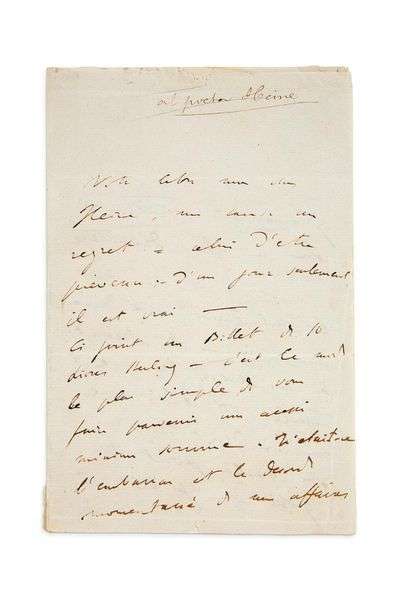 Heine
Votre lettre mon cher
Heine, me cause un
regret = celui d'être
prévenu = d'un jour seulement
il est vrai —
Ci joint un Billet de 10
Livres — c'est le mode
le plus simple de vous
faire parvenir une aussi
minime somme. N'était
l'embarras et le désordre
momentané de mes affaires